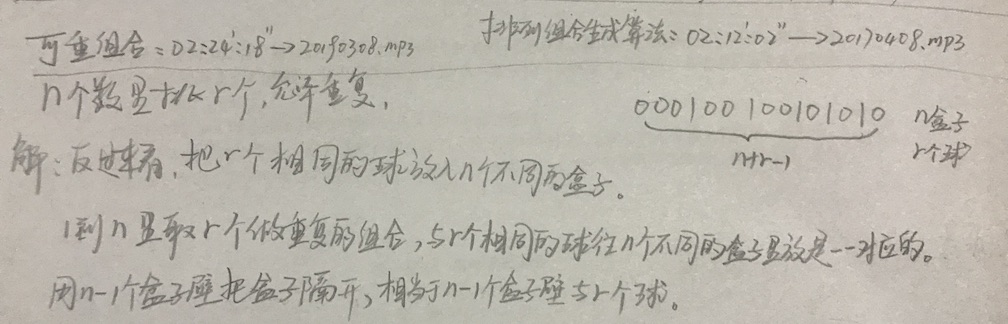 可重组合:02:24':18"→20190308.mp3
排列组合生成算法:02:12':02"→20190408.mp3
n个数里找r个,允许重复,
000100100101010 n盒子
n+r-1 r个球
解:反过来看,把r个相同的球放入n个不同的盒子。
1到n里取r个做重复的组合,与r个相同的球往n个不同的盒子里放是一一对应的。
用n-1个盒子壁把盒子隔开,相当于n-1个盒子壁与r个球。